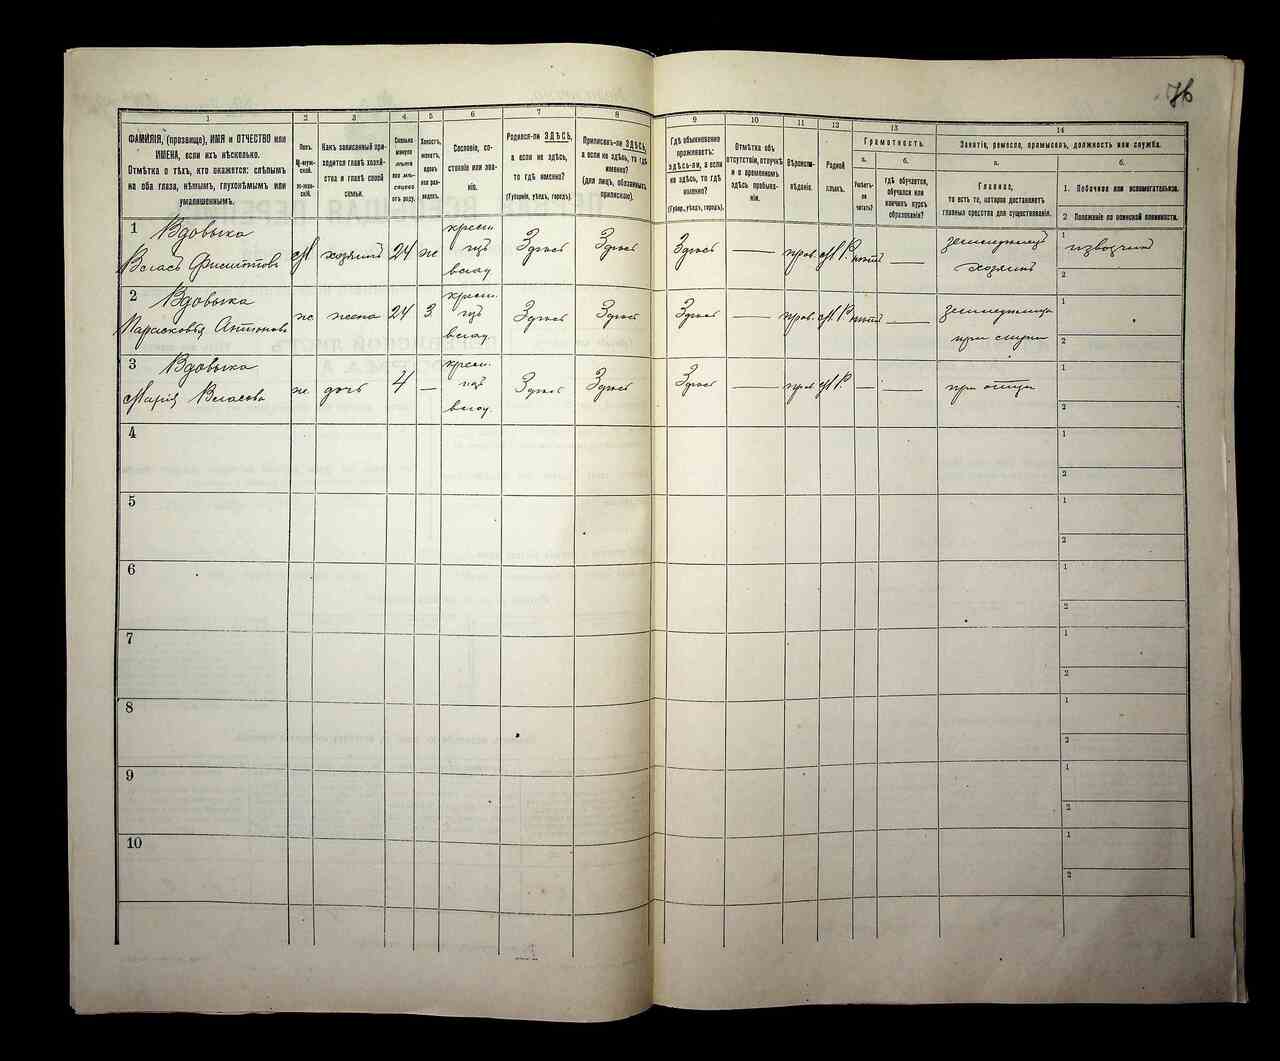 76
1 2 3 4 5 6 7 8 9 10 11 12 13 14
ФАМИЛІЯ, (прозвище), ИМЯ и ОТЧЕСТВО или
ИМЕНА, если ихъ нѣсколько.
Отмѣтка о тѣхъ, кто окажется: слѣпымъ
на оба глаза, нѣмымъ, глухонѣмымъ или
умалишеннымъ.
Полъ.
М-муж-
ской.
Ж-жен-
скій.
Какъ записанный при-
ходится главѣ хозяй-
ства и главѣ своей
семьи.
Сколько
минуло
лѣтъ
или мѣ-
сяцевъ
отъ роду.
Холостъ,
женатъ,
вдовъ
или раз-
веденъ.
Сословіе, со-
стояніе или зва-
ніе.
Родился-ли ЗДѢСЬ,
а если не здѣсь,
то гдѣ именно?
(Губернія, уѣздъ, городъ).
Приписанъ-ли ЗДѢСЬ,
а если не здѣсь, то гдѣ
именно?
(для лицъ, обязанныхъ
припискою).
Гдѣ обыкновенно
проживаетъ:
ЗДѢСЬ-ли, а если
не здѣсь, то гдѣ
именно?
(Губерн., уѣздъ, городъ).
Отмѣтка объ
отсутствіи, отлучкѣ
и о временномъ
здѣсь пребыва-
ніи.
Вѣроиспо-
вѣданіе.
Родной
языкъ.
Грамотность.
а.
Умѣетъ-
ли
читать?
б.
гдѣ обучается,
обучался или
кончилъ курсъ
образованія?
Занятіе, ремесло, промыселъ, должность или служба.
а.
Главное,
то есть то, которое доставляетъ
главныя средства для существованія.
б.
1. Побочное или вспомогательное.
2 Положеніе по воинской повинности.
1 Вдовыка
Власъ М хозяинъ 24 ж крест. изъ влад. Здѣсь Здѣсь Здѣсь — прав. М.Р. нѣтъ — земледѣлецъ хозяинъ 1 извозчикъ
2
2 Вдовыка
Парасковья Антонова ж жена 24 З крест. изъ влад. Здѣсь Здѣсь Здѣсь — прав. М.Р. нѣтъ — земледѣлица при мужѣ 1
2
3 Вдовыка
Марія Власова ж. дочь 4 — крест. изъ влад. Здѣсь Здѣсь Здѣсь — прав М.Р. — — при отцѣ 1
2
4 1
2
5 1
2
6 1
2
7 1
2
8 1
2
9 1
2
10 1
2